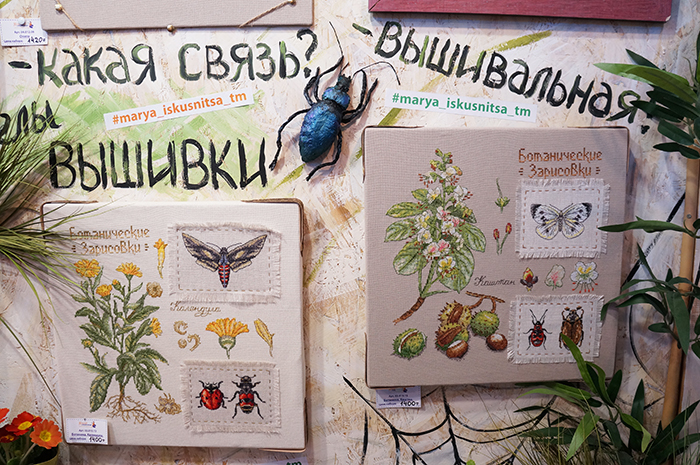 1420₽
-КАКАЯ СВЯЗЬ?
-ВЫШИВАЛЬНАЯ!
#marya_iskusnitsa_tm
#marya_iskusnitsa_tm
ВЫШИВКИ
Ботанические
Зарисовки
Календула
Ботанические
Зарисовки
Каштан
1400₽
1400₽